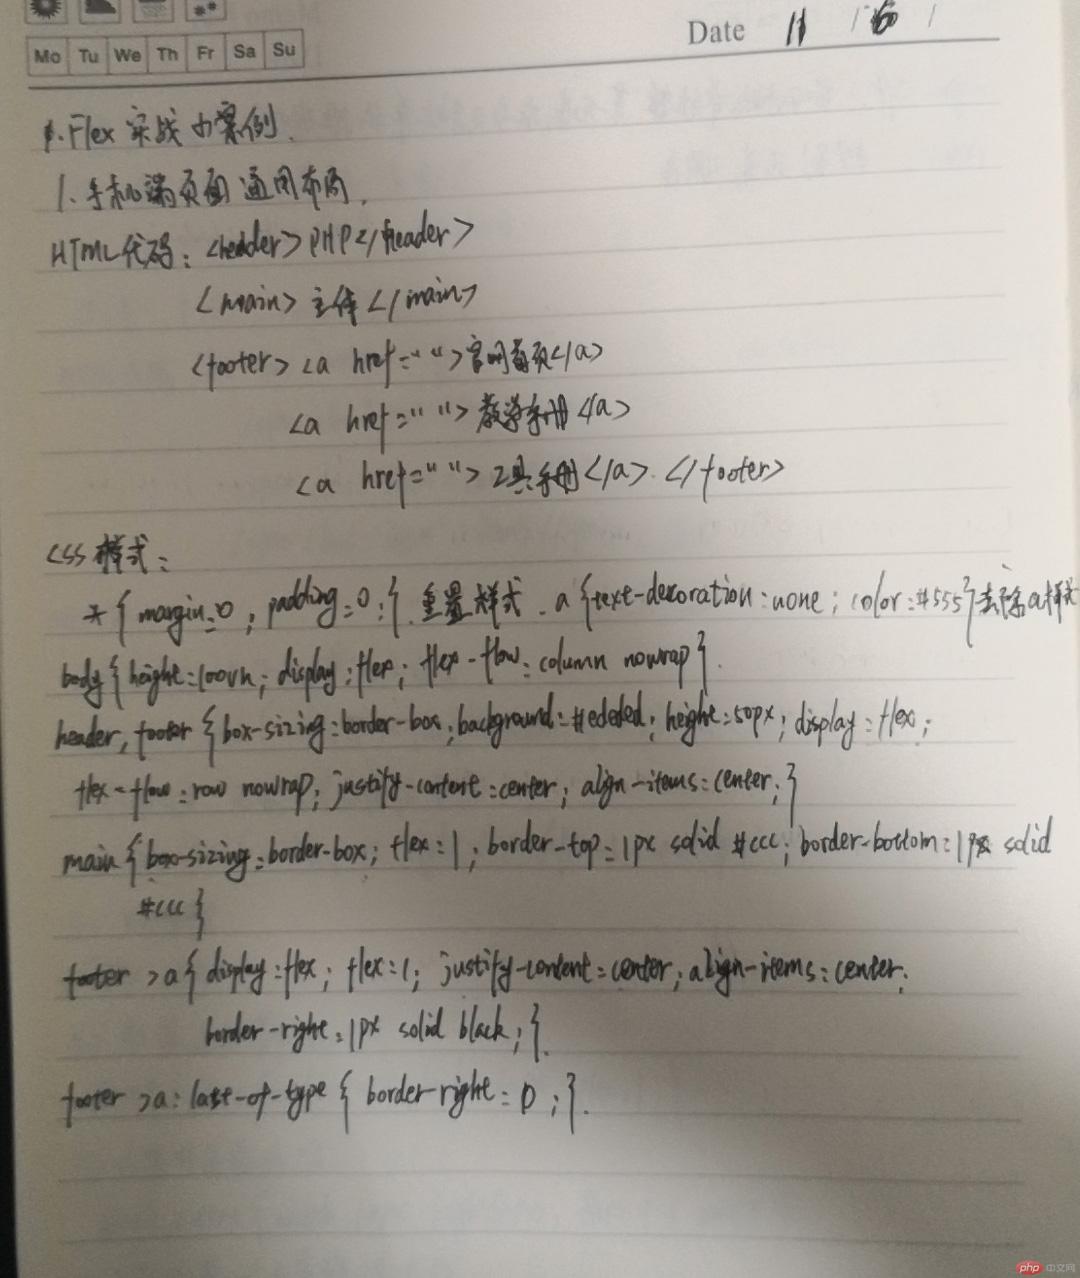 Date 11 / 6 /
Mo Tu We Th Fr Sa Su
1. Flex 实战小案例.
1. 手机端页面通用布局.
HTML代码: <header>PHP</header>
<main>主体</main>
<footer> <a href="">官网首页</a>
<a href="">教学手册</a>
<a href="">工具手册</a>. </footer>
CSS 样式:
* { margin:0; padding:0;} 重置样式. a {text-decoration:none; color:#555}去除a样式
body { height:100vh; display:flex; flex-flow:column nowrap}.
header, footer {box-sizing:border-box; background:#ededed; height:50px; display:flex;
flex-flow:row nowrap; justify-content:center; align-items:center;}
main {box-sizing:border-box; flex:1; border-top:1px solid #ccc; border-bottom:1px solid
#ccc}
footer >a{ display:flex; flex:1; justify-content:center; align-items:center;
border-right:1px solid black;}.
footer >a:last-of-type { border-right:0;}.
php 中文网